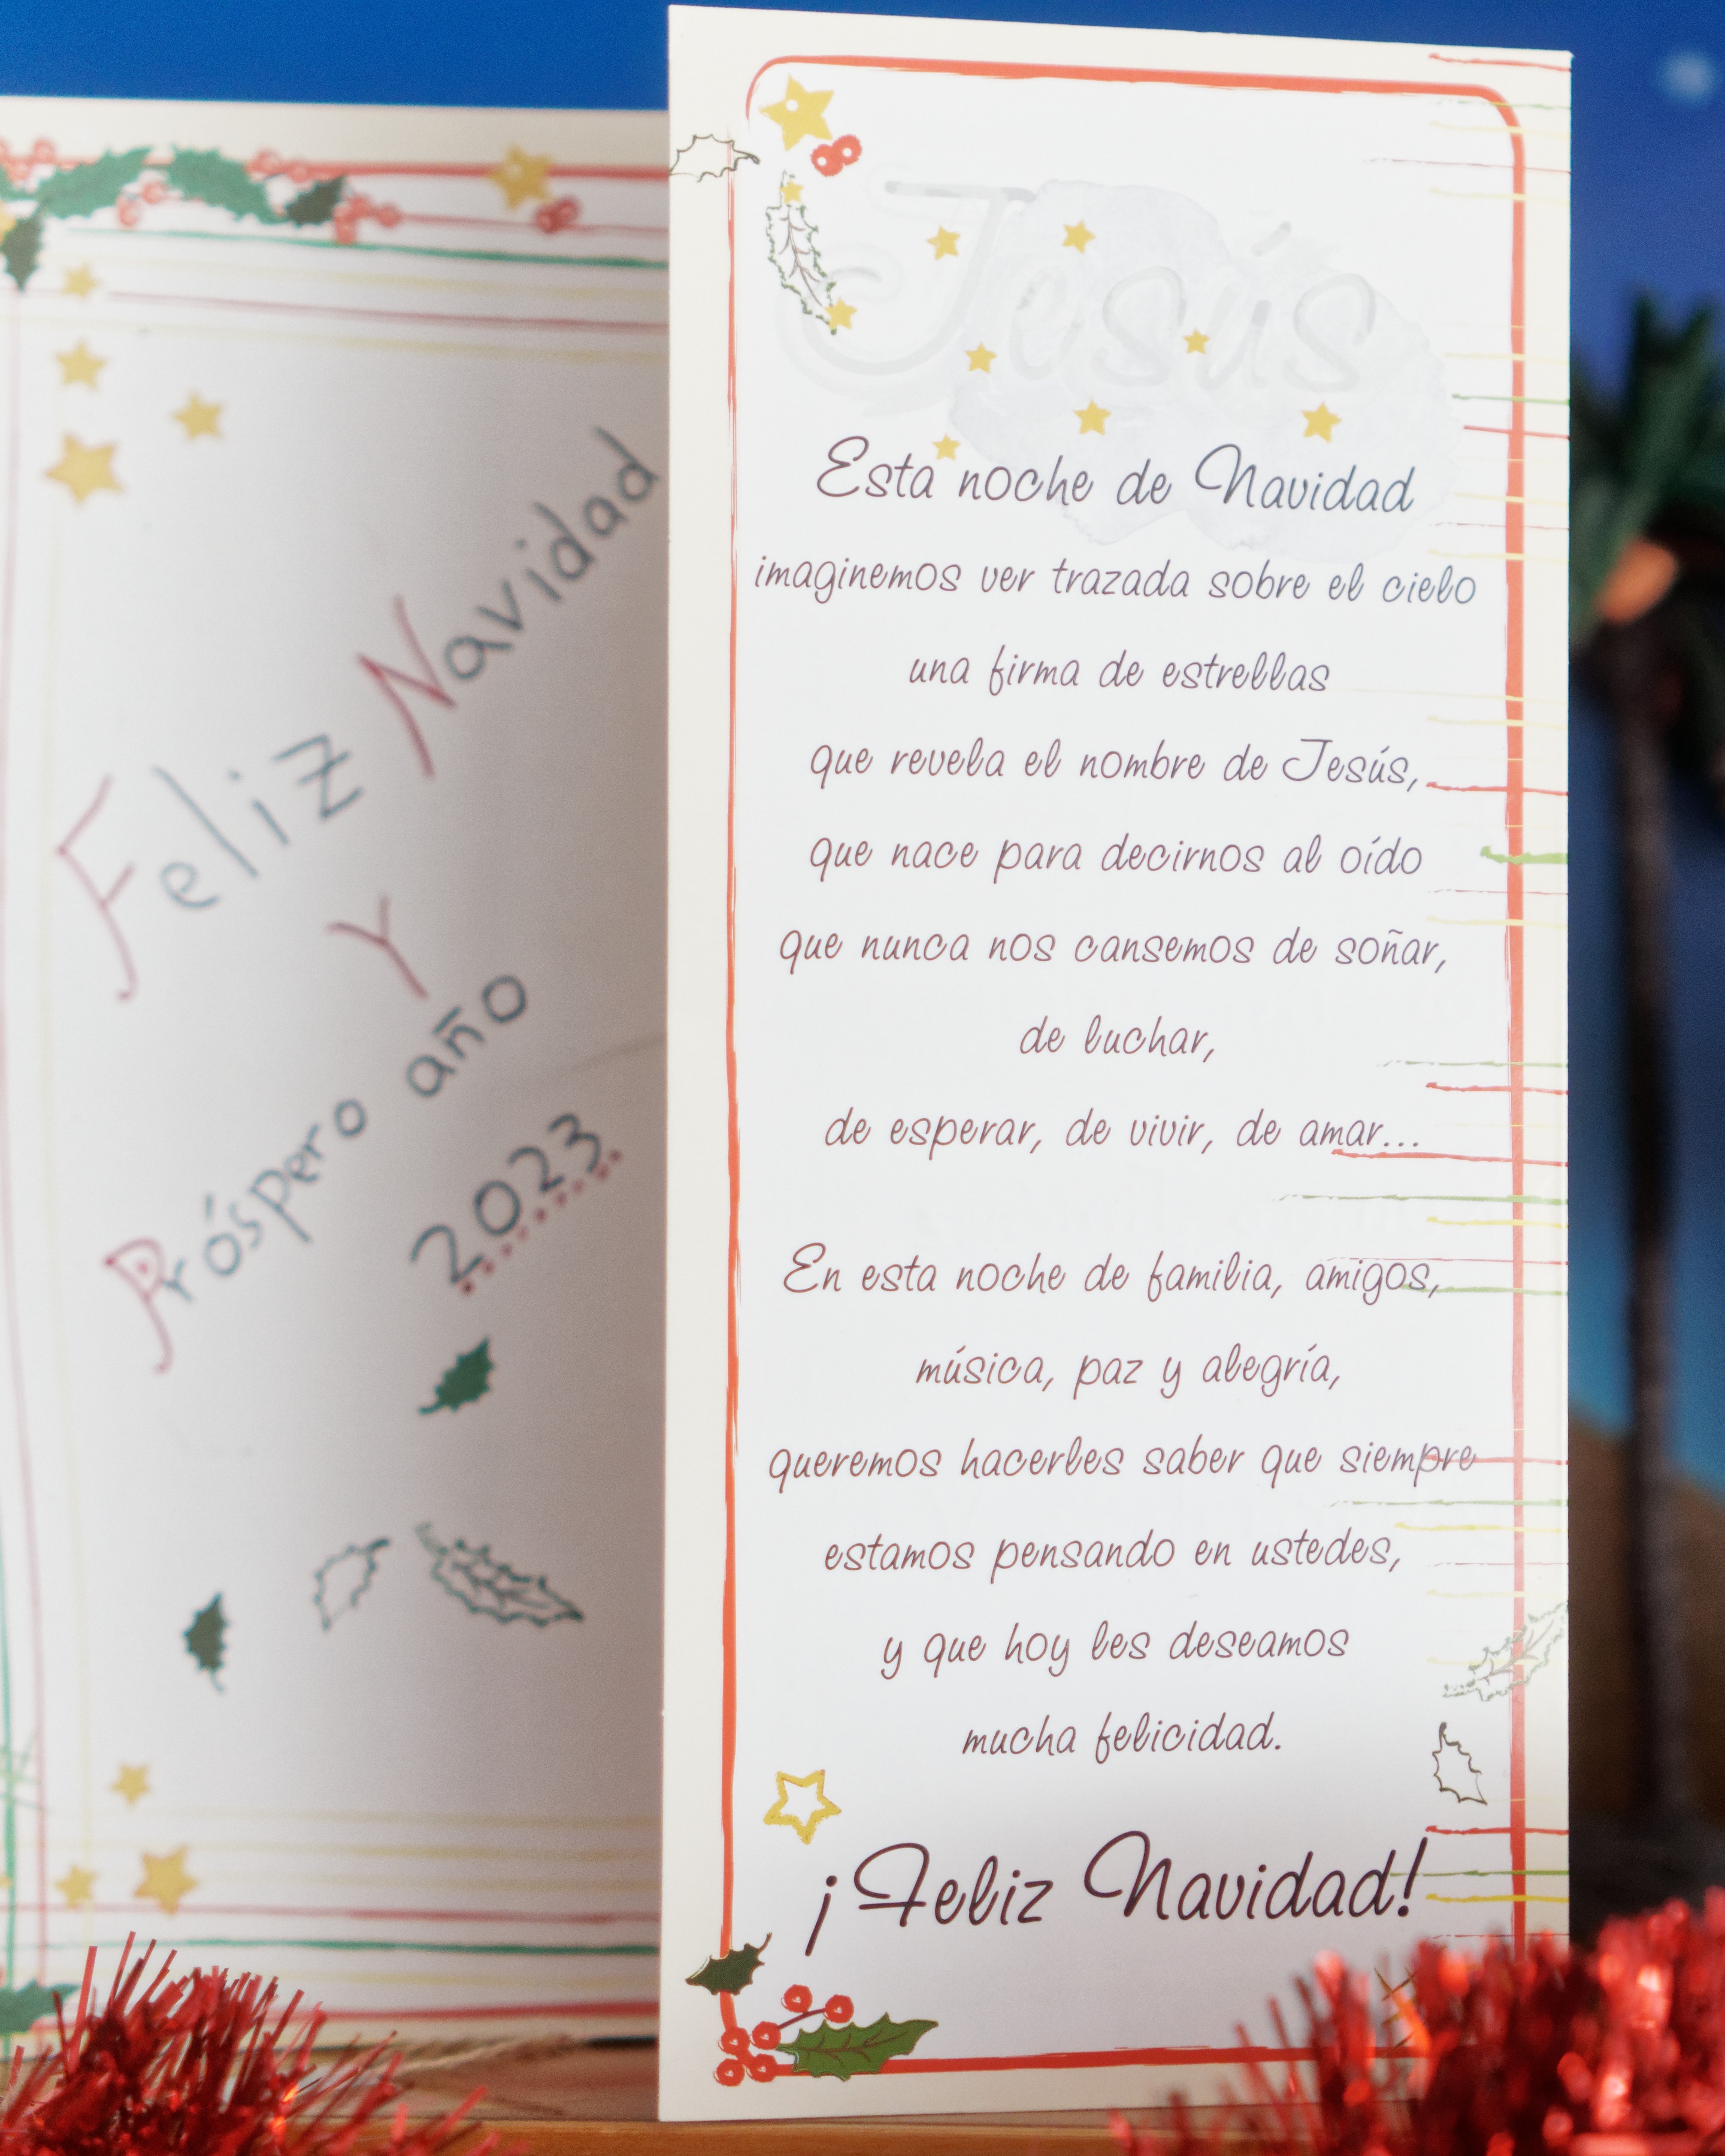 Feliz Navidad
Y
Próspero año
2023
Jesús
Esta noche de Navidad
imaginemos ver trazada sobre el cielo
una firma de estrellas
que revela el nombre de Jesús,
que nace para decirnos al oído
que nunca nos cansemos de soñar,
de luchar,
de esperar, de vivir, de amar...
En esta noche de familia, amigos,
música, paz y alegría,
queremos hacerles saber que siempre
estamos pensando en ustedes,
y que hoy les deseamos
mucha felicidad.
¡Feliz Navidad!